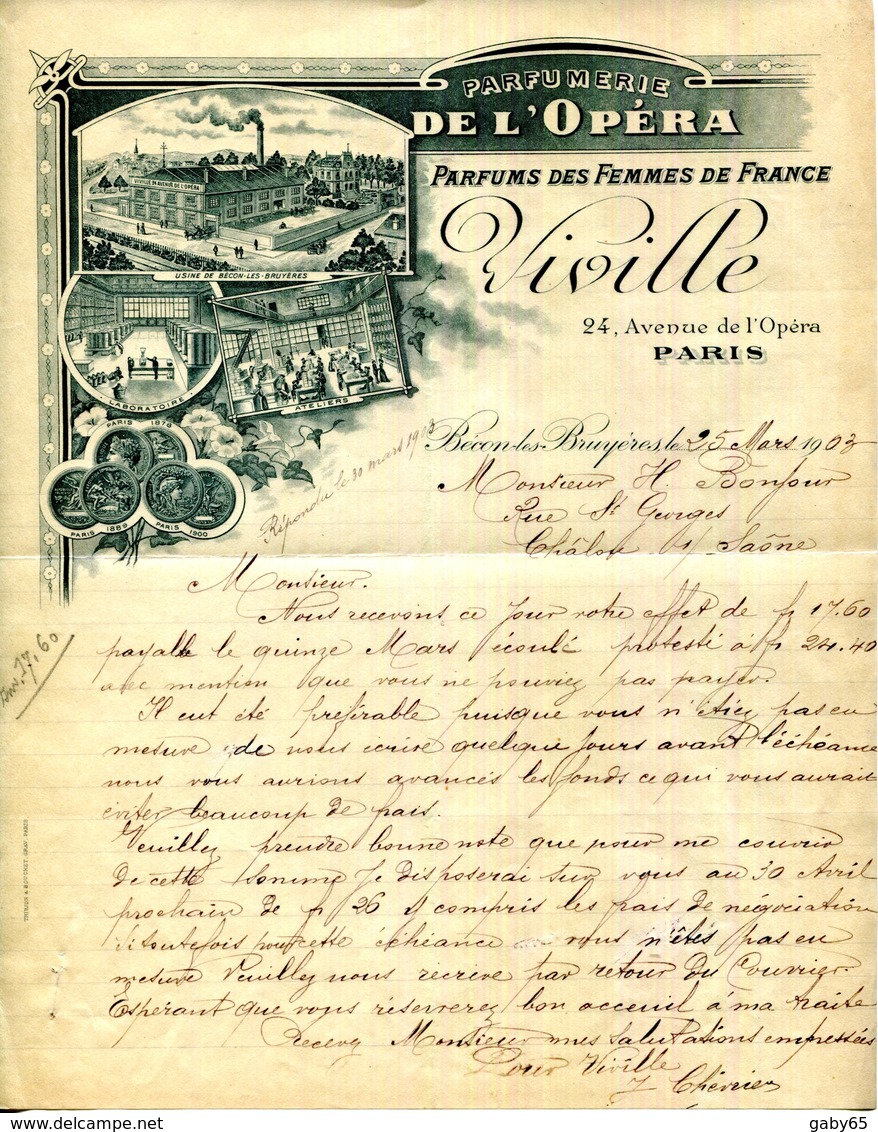 PARFUMERIE
DE L'OPÉRA
PARFUMS DES FEMMES DE FRANCE
Viville
24, Avenue de l'Opéra
PARIS
VIVILLE 24 AVENUE DE L'OPÉRA
USINE DE BÉCON-LES-BRUYÈRES
LABORATOIRE
ATELIERS
PARIS 1879
PARIS 1889
PARIS 1900
Bécon-les-Bruyères, le 25 Mars 1903
Répondu le 30 mars 1903
Monsieur H. Bonjour
Rue St Georges
Châlon s/ Saône
Monsieur.
Nous recevons ce jour votre effet de fr 17.60
payable le quinze Mars écoulé protesté à fr 24.40
avec mention que vous ne pouviez pas payer.
17.60
Il eut été préférable puisque vous n'étiez pas en
mesure de nous écrire quelque jours avant l'échéance
nous vous aurions avancés les fonds ce qui vous aurait
éviter beaucoup de frais.
Veuillez prendre bonne note que pour me couvrir
de cette somme je disposerai sur vous au 30 Avril
prochain de fr 26 y compris les frais de négociation
si toutefois pour cette échéance vous n'êtes pas en
mesure Veuillez nous récrire par retour du Courrier.
Espérant que vous réserverez bon acceuil à ma traite
Recevez Monsieur mes salutations empressées
Pour Viville
J Chévrier
PARIS
gaby65